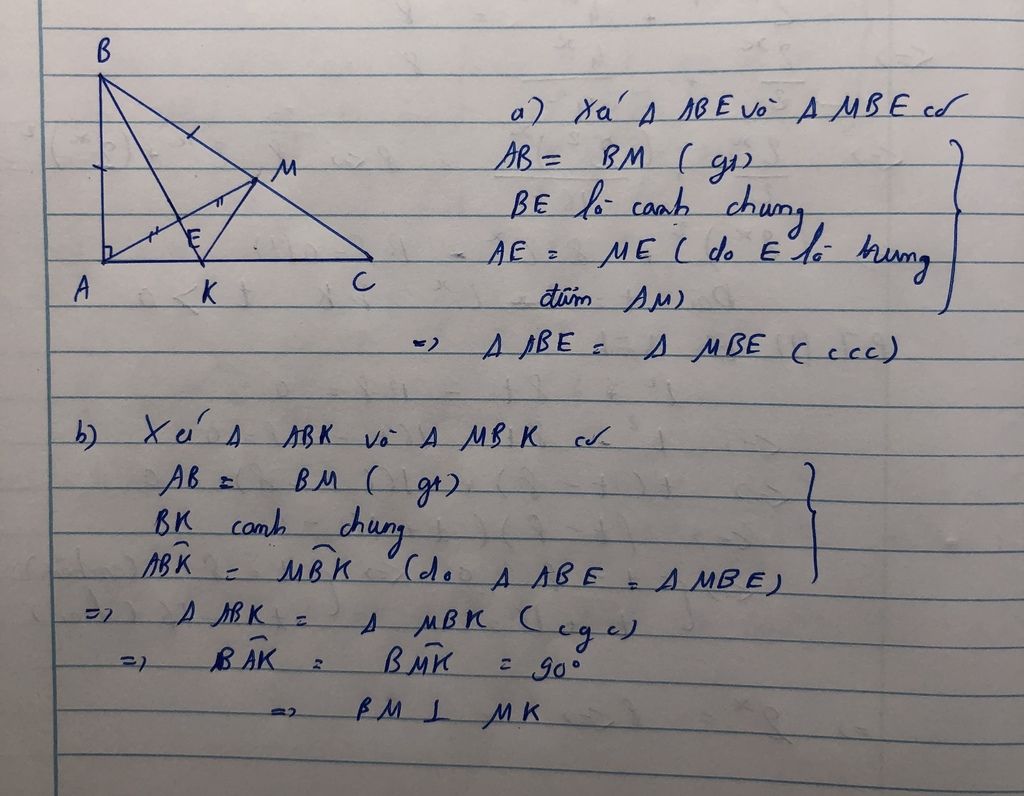 B
M
E
A
K
C
a) Xé Δ ABE và Δ MBE có
AB = BM ( gt)
BE là cạnh chung
AE = ME ( do E là trung
điểm AM)
=> Δ ABE = Δ MBE ( ccc)
b) Xé Δ ABK và Δ MBK có
AB = BM ( gt)
BK cạnh chung
AB̂K = MB̂K (do Δ ABE = Δ MBE)
=> Δ ABK = Δ MBK ( cgc)
=> BÂK = BM̂K = 90°
=> BM ⊥ MK